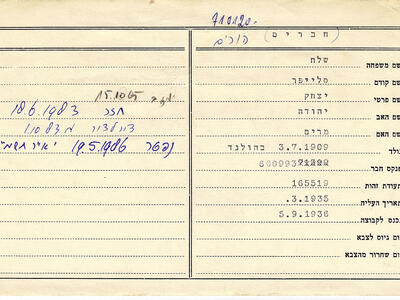 710120-
( חברים )
הורים
שם משפחה שלח
שם קודם סלייפר
שם פרטי יצחק
שם האב יהודה
שם האם מרים
ולד 3.7.1909 בהולנד
פנקס חבר
תעודת זהות 165519
תאריך העליה .3.1935
כנס לקבוצה 5.9.1936
ום גיוס לצבא
ום שחרור מהצבא
עזב 15.10.65
חזר 18.6.1983
נפטר 19.5.1986